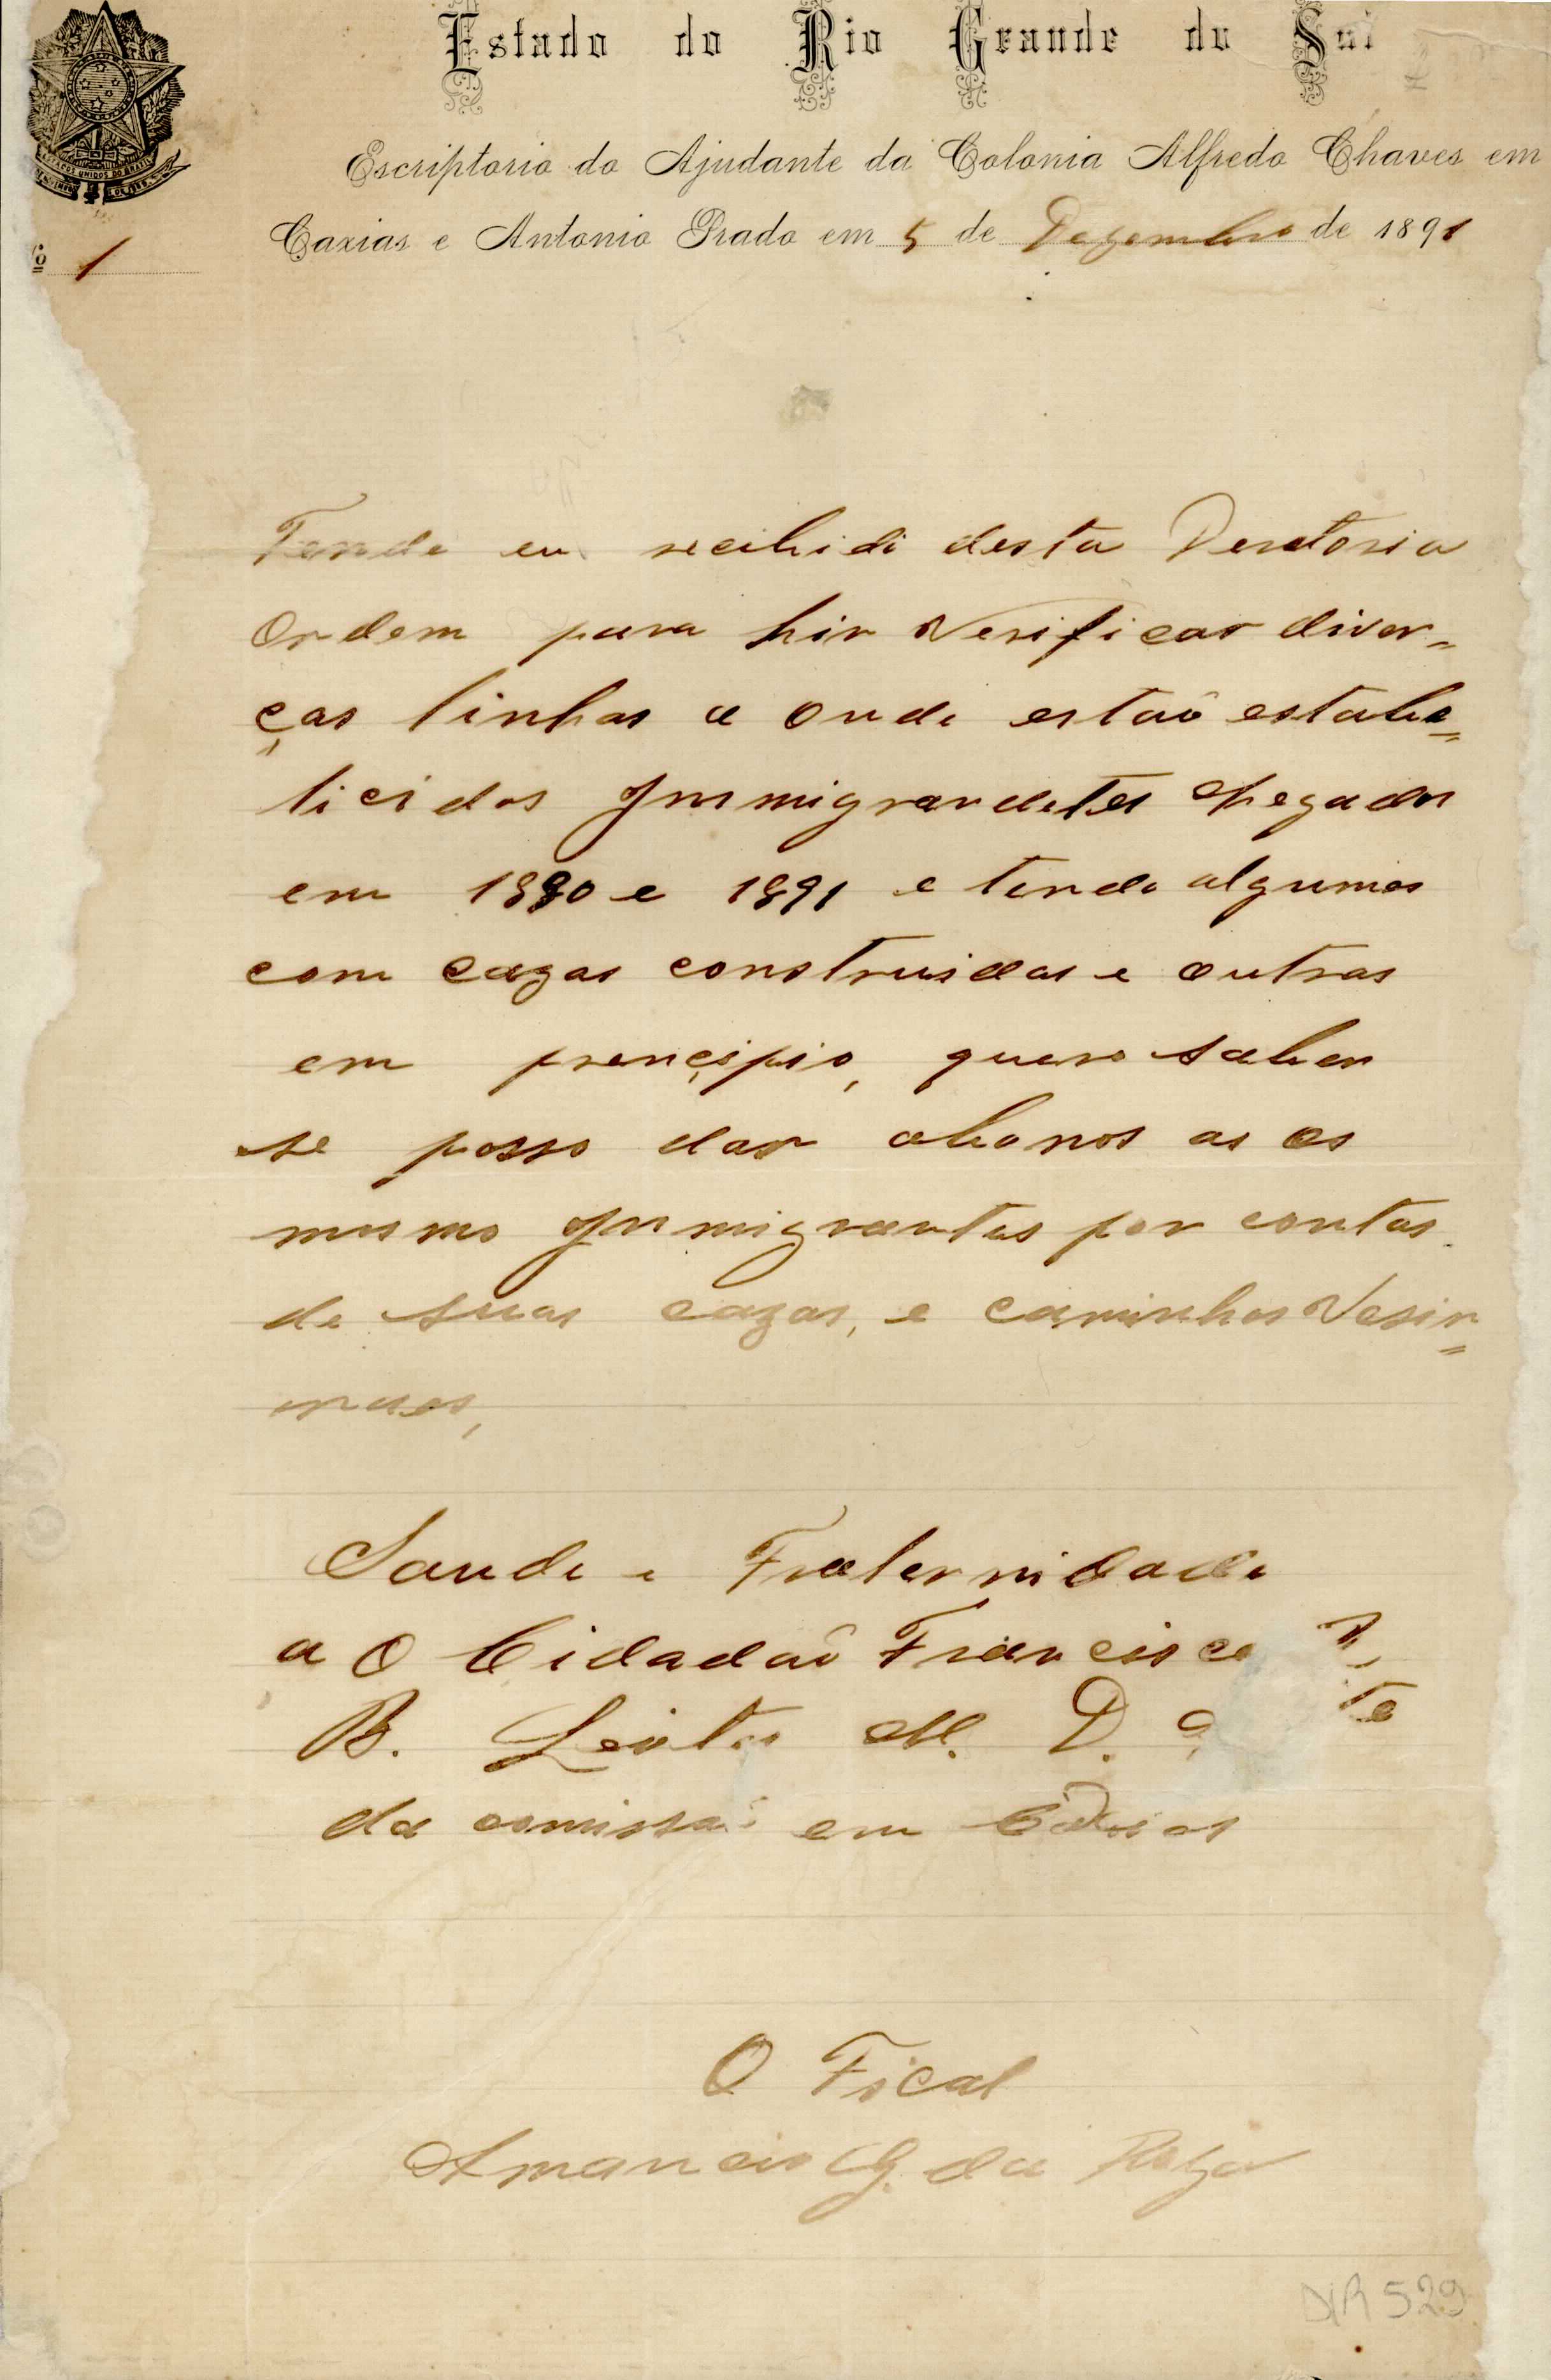 Estado do Rio Grande do Sul
Escriptorio do Ajudante da Colonia Alfredo Chaves em
Caxias e Antonio Prado em 5 de Dezembro de 1891
1
Tendo eu recibido desta Deretoria
Ordem para hir Verificar diver=
ças linhas a onde estaô estabe=
licidos Immigrandetes chegados
em 1890 e 1891 e tendo algumas
com cazas construidas e outras
em prencipio, quero saber
se posso dar abonos as os
mesmo Immigrantes por contas
de suas cazas, e caminhos Vesin=
naes,
Saude e Fraternidade
a O Cidadaô Francisco
B. Leite M. D.
da comissaô em Caxias
O Fical
Amancio G. da
DIR 529